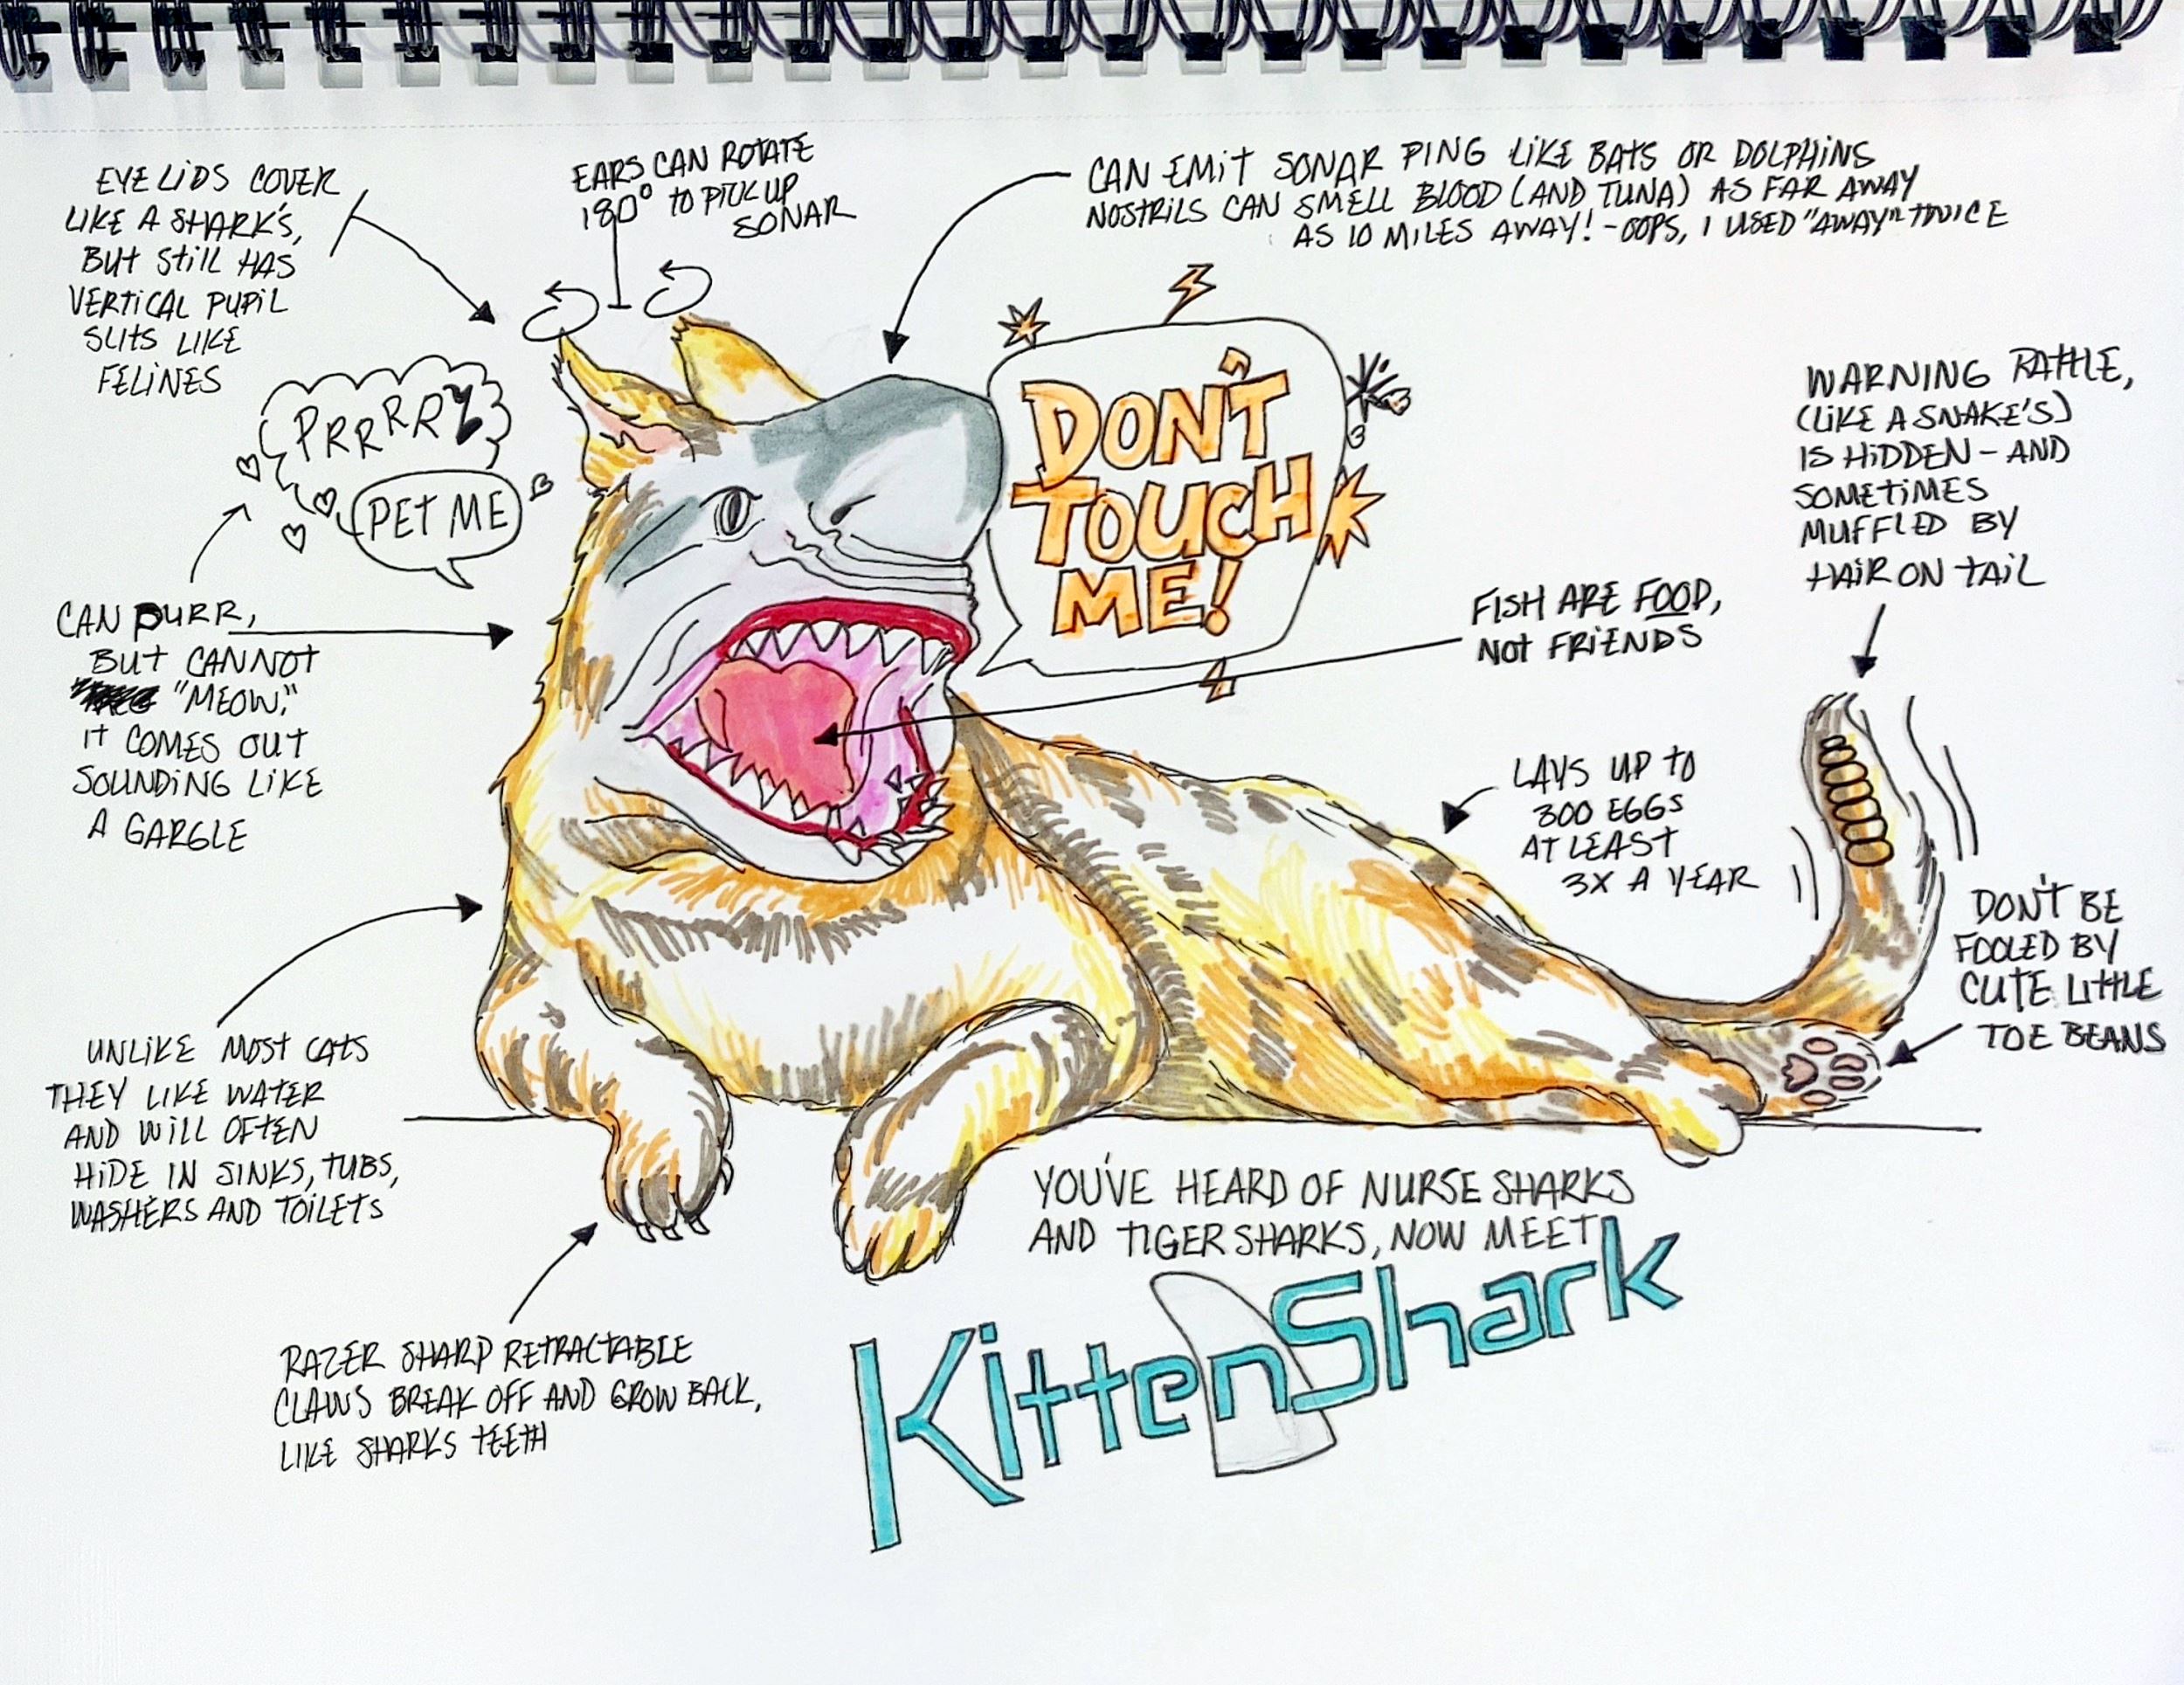 EYE LIDS COVER
LIKE A SHARK'S,
BUT STILL HAS
VERTICAL PUPIL
SLITS LIKE
FELINES
EARS CAN ROTATE
180° TO PICK UP
SONAR
CAN EMIT SONAR PING LIKE BATS OR DOLPHINS
NOSTRILS CAN SMELL BLOOD (AND TUNA) AS FAR AWAY
AS 10 MILES AWAY! - OOPS, I USED "AWAY" TWICE
PRRRR
PET ME
DON'T
TOUCH
ME!
WARNING RATTLE,
(LIKE A SNAKE'S)
IS HIDDEN - AND
SOMETIMES
MUFFLED BY
HAIR ON TAIL
CAN PURR,
BUT CANNOT
"MEOW."
IT COMES OUT
SOUNDING LIKE
A GARGLE
FISH ARE FOOD,
NOT FRIENDS
LAYS UP TO
300 EGGS
AT LEAST
3X A YEAR
DON'T BE
FOOLED BY
CUTE LITTLE
TOE BEANS
UNLIKE MOST CATS
THEY LIKE WATER
AND WILL OFTEN
HIDE IN SINKS, TUBS,
WASHERS AND TOILETS
RAZER SHARP RETRACTABLE
CLAWS BREAK OFF AND GROW BACK,
LIKE SHARKS TEETH
YOU'VE HEARD OF NURSE SHARKS
AND TIGER SHARKS, NOW MEET
KittenShark